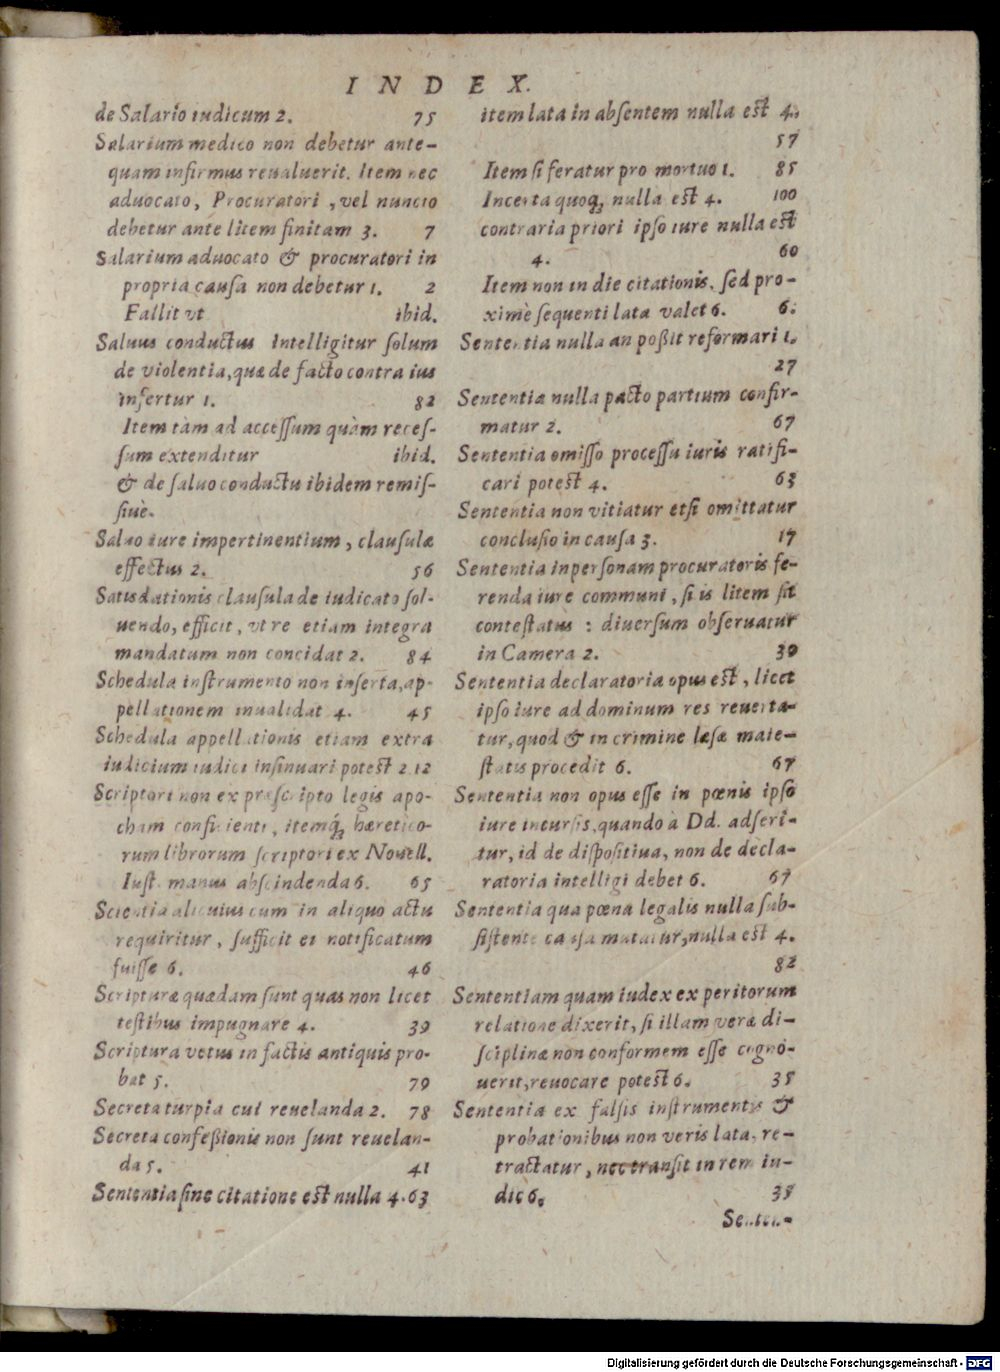 INDEX.
de Salario iudicum 2. 75
Salarium medico non debetur ante-
quam infirmus reualuerit. Item nec
aduocato, Procuratori, vel nuncio
debetur ante litem finitam 3. 7
Salarium aduocato & procuratori in
propria causa non debetur 1. 2
Fallit vt ibid.
Saluus conductus intelligitur solum
de violentia, quæ de facto contra ius
infertur 1. 82
Item tàm ad accessum quàm reces-
sum extenditur ibid.
& de saluo conductu ibidem remis-
siuè.
Saluo iure impertinentium, clausulæ
effectus 2. 56
Satisdationis clausula de iudicato sol-
uendo, efficit, vt re etiam integra
mandatum non concidat 2. 84
Schedula instrumento non inserta, ap-
pellationem inualidat 4. 45
Schedula appellationis etiam extra
iudicium iudici insinuari potest 2. 12
Scriptori non ex præscripto legis apo-
cham conficienti, itemq́₃ hæretico-
rum librorum scriptori ex Nouell.
Iust. manus abscindenda 6. 65
Scientia alicuius cum in aliquo actu
requiritur, sufficit ei notificatum
fuisse 6. 46
Scripturæ quædam sunt quas non licet
testibus impugnare 4. 39
Scriptura vetus in factis antiquis pro-
bat 5. 79
Secreta turpia cui reuelanda 2. 78
Secreta confeßionis non sunt reuelan-
da 5. 41
Sententia sine citatione est nulla 4. 63
item lata in absentem nulla est 4.
57
Item si feratur pro mortuo 1. 85
Incerta quoq₃ nulla est 4. 100
contraria priori ipso iure nulla est
4. 60
Item non in die citationis, sed pro-
ximè sequenti lata valet 6. 6.
Sententia nulla an poßit reformari 1.
27
Sententia nulla pacto partium confir-
matur 2. 67
Sententia omisso processu iuris ratifi-
cari potest 4. 63
Sententia non vitiatur etsi omittatur
conclusio in causa 3. 17
Sententia in personam procuratoris fe-
renda iure communi, si is litem sit
contestatus : diuersum obseruatur
in Camera 2. 30
Sententia declaratoria opus est, licet
ipso iure ad dominum res reuerta-
tur, quod & in crimine læsæ maie-
statis procedit 6. 67
Sententia non opus esse in pœnis ipso
iure incursis, quando à Dd. adseri-
tur, id de dispositiua, non de decla-
ratoria intelligi debet 6. 67
Sententia qua pœna legalis nulla sub-
sistente causa mutatur, nulla est 4.
82
Sententiam quam iudex ex peritorum
relatione dixerit, si illam veræ di-
sciplinæ non conformem esse cogno-
uerit, reuocare potest 6. 35
Sententia ex falsis instrumentis &
probationibus non veris lata, re-
tractatur, nec transit in rem iu-
dic 6. 38
Senten-
Digitalisierung gefördert durch die Deutsche Forschungsgemeinschaft - DFG